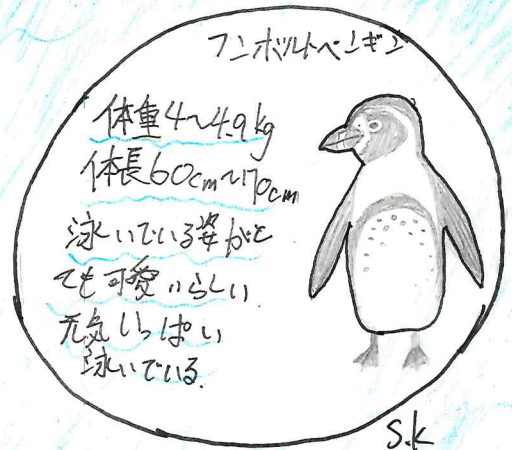 フンボルトペンギン
体重4〜4.9kg
体長60cm〜70cm
泳いでいる姿がと
ても可愛いらしい
元気いっぱい
泳いでいる.
S.K